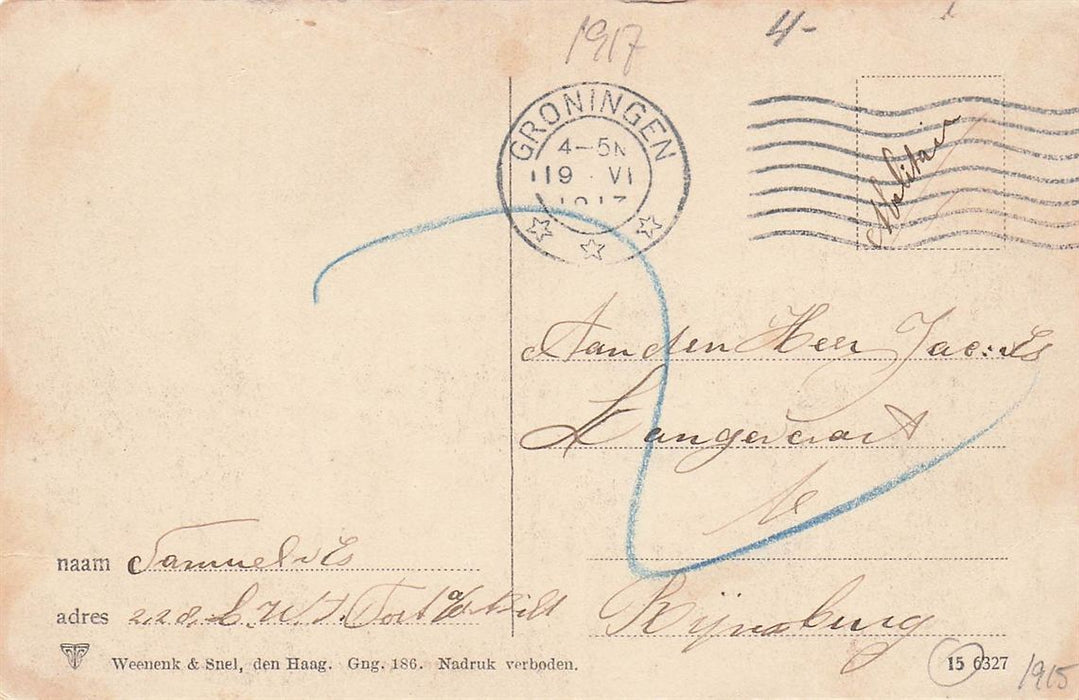 1917
4-
GRONINGEN
4-5N
19 VI
1917
Militair
Aan den Heer Jac: v Es
Langevaart
te
Rijnsburg
naam Samuel v Es
adres 228 L.W.I. Fort a/d
Weenenk & Snel, den Haag. Gng. 186. Nadruk verboden.
15 6327
1915